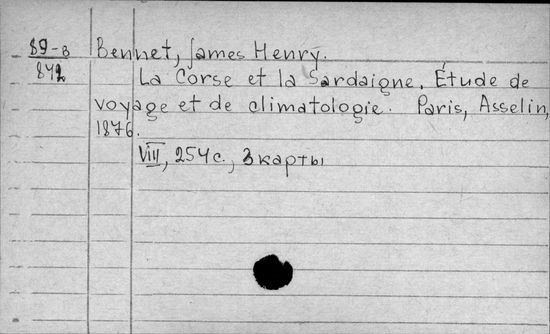 89-в Bennet, James Henry.
842 La Corse et la Sardaigne. Étude de
voyage et de climatologie. Paris, Asselin,
1876.
VIII, 254 с., 3 карты